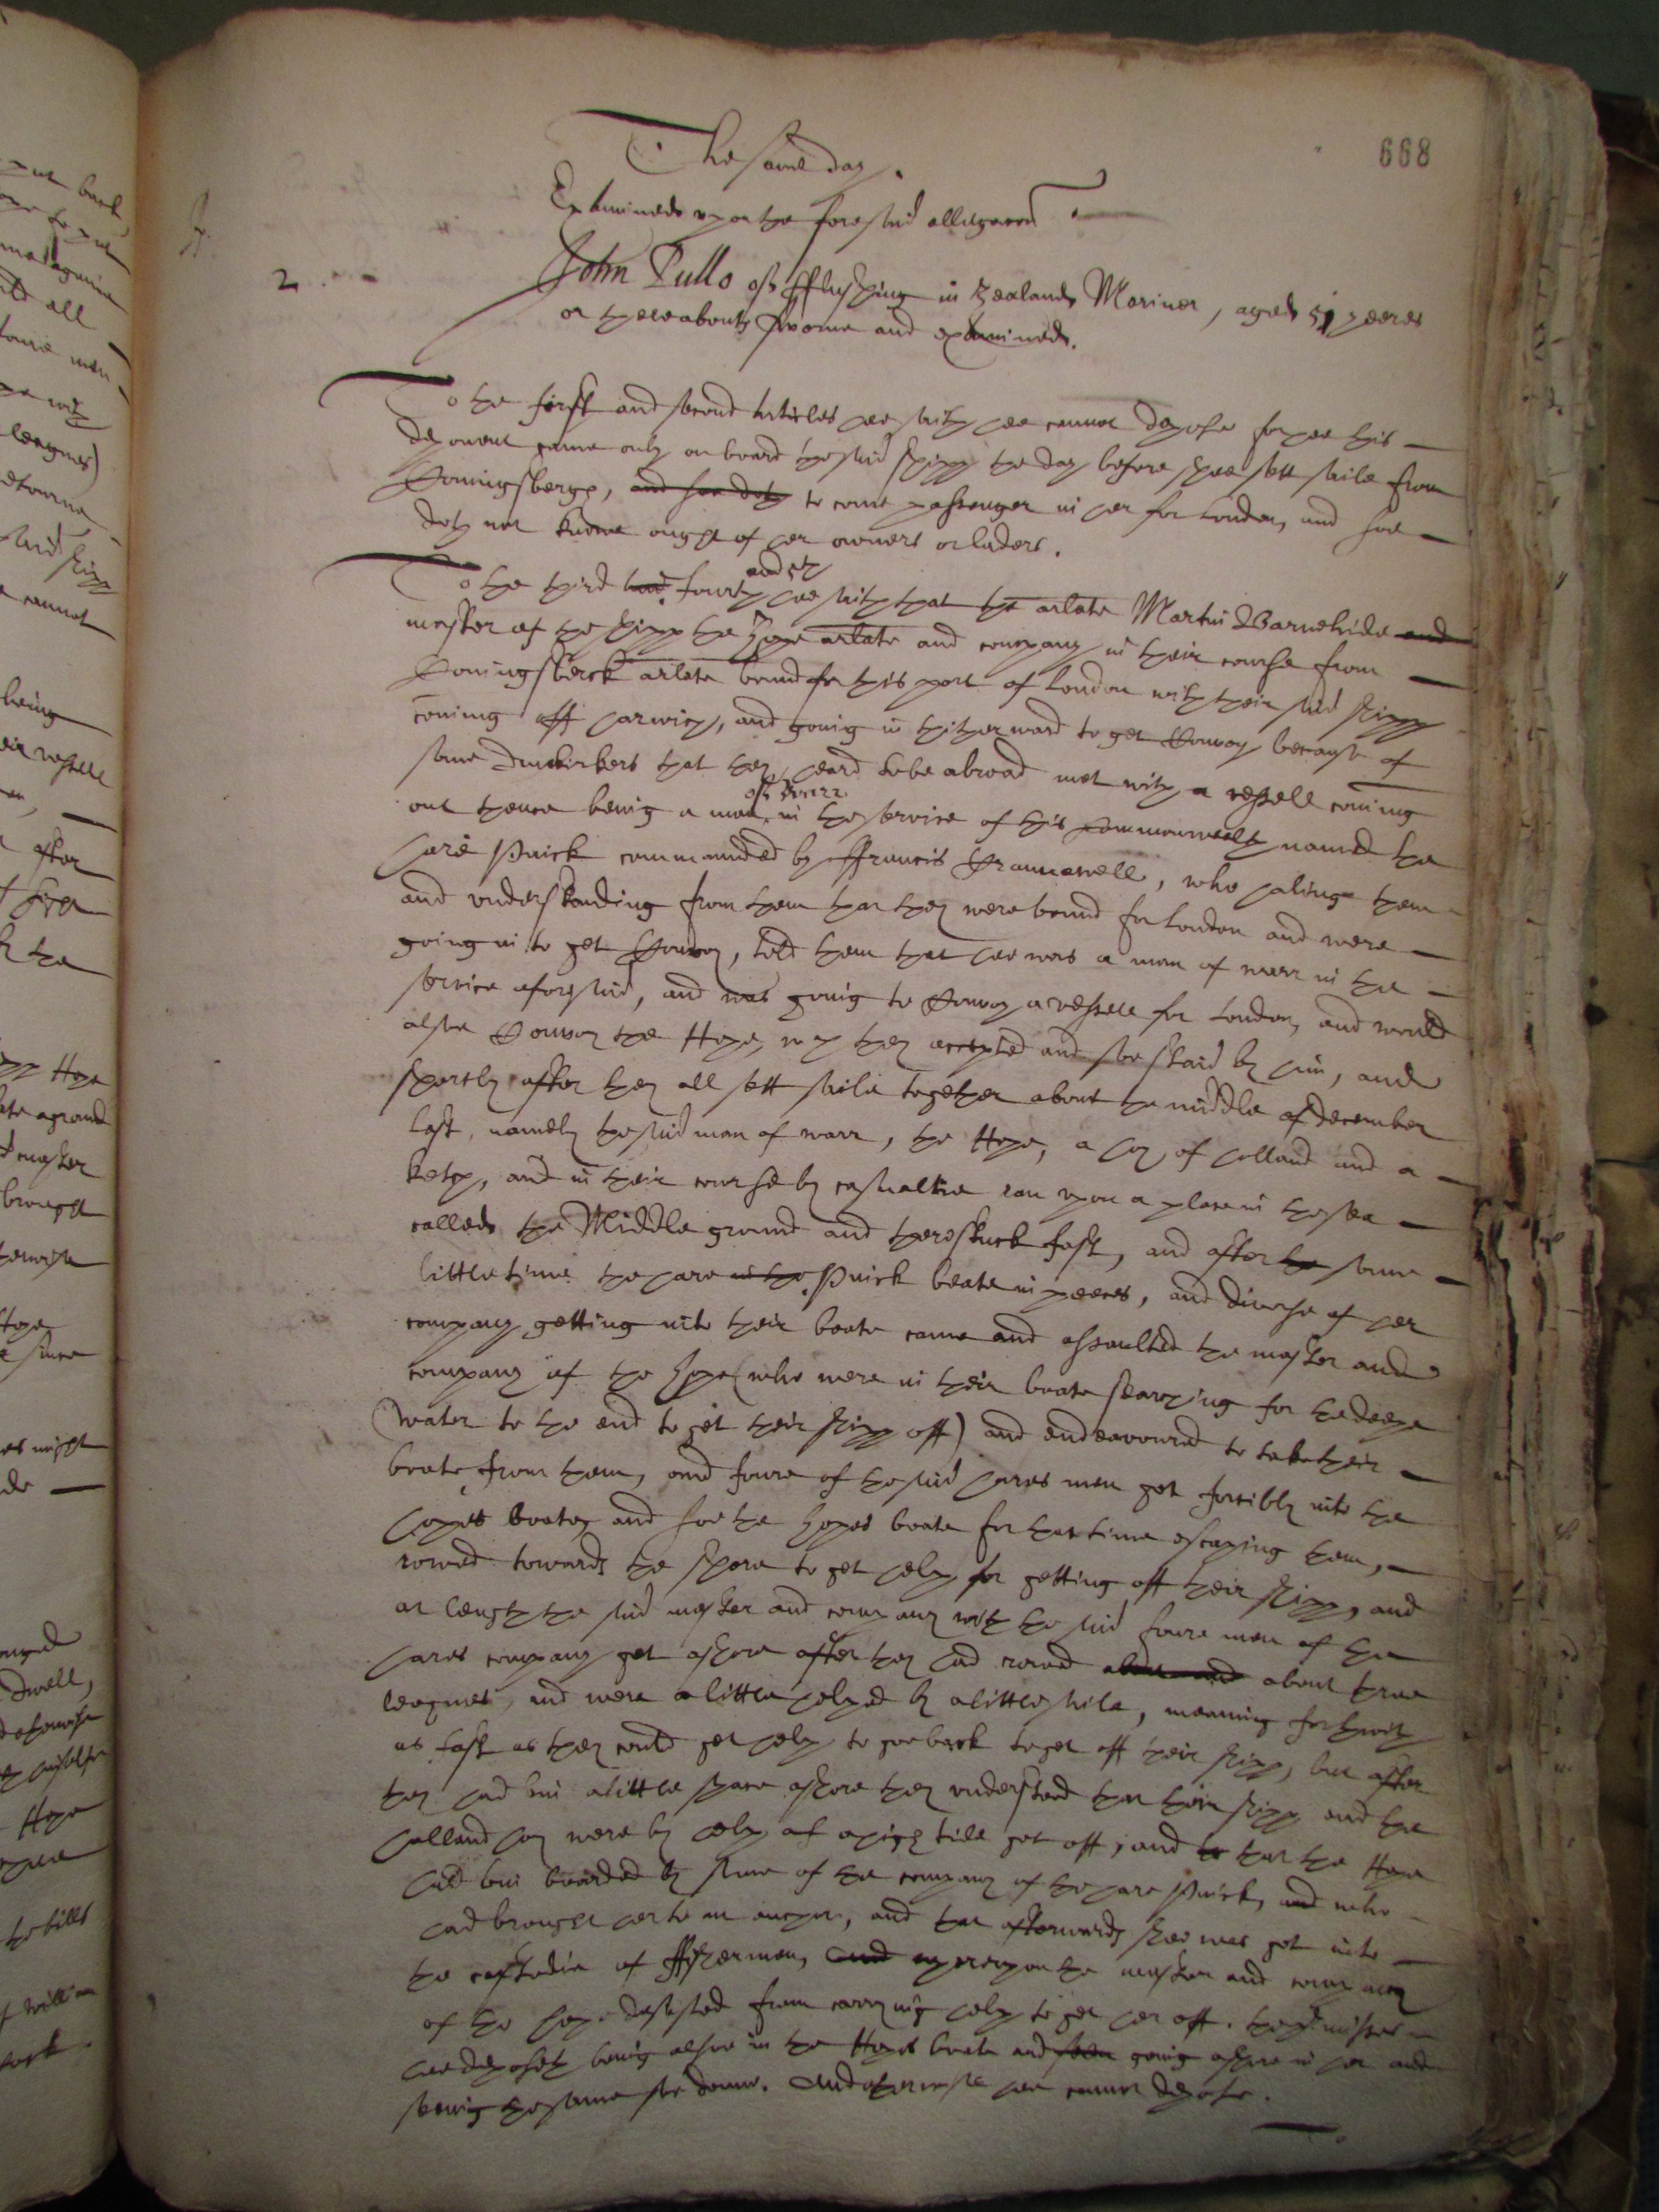 668
The same day.
Examined upon the foresaid allegation
2
John Pullo of fflushing in Zealand Mariner, aged 51 yeeres
or thereabouts sworne and examined.
To the first and second Articles hee saith hee cannot depose for hee this
deponent came only on board the said shipp the day before shee sett saile from
Coningsberge, and hee doth to come passenger in her for London, and soe
doth not knowe ought of her owners or laders.
To the third and fourth and 5th hee saith that the arlate Martin Barnehide and
master of the shipp the Hope arlate and company in their course from
Coningsberck arlate bound for this port of London with their said shipp
coming off harwich, and going in thitherward to get Convoy because of
some dunkirkers that they heard to be abroad met with a vessell coming
out thence being a man of warr in the service of this commonwealth named the
hare Pinck commanded by ffrancis Cranwell, who haling them
and understanding from them that they were bound for London and were
going in to get Convoy, told them that hee was a man of warr in the
service aforesaid, and was going to Convoy a vessell for London, and would
alsoe Convoy the Hope, wch they accepted and soe staid by him, and
shortly after they all sett saile together about the middle of december
last, namely the said man of warr, the Hope, a hoy of holland and a
ketch, and in their course by casualtie ran upon a place in the sea
called the Middle ground and there stuck fast, and after the some
little time the hare in the Pinck beate in peeces, and diverse of her
company getting into their boate came and assaulted the master and
company of the hope (who were in their boate searching for the deepe
water to the end to get their shipp off) and endeavoured to take their
boate from them, and foure of the said hares men got forcibly into the
hopes boate, and soe the hopes boate for that time escaping them,
rowed towards the shore to get help for getting off their shipp, and
at length the said master and company with the said foure men of the
hares company got ashore after they had rowed about and about three
leagues, and were a little helped by a little saile, meaning forthwith
as fast as they could get help to goe back to get off their shipp, but after
they had bin a little space ashore they understood that their shipp and the
holland hoy were by help of a high tide got off, and to that the Hope
had bin boarded by some of the company of the hare Pinck, and who
had brought her to an anchor, and that afterwards shee was got into
the custodie of ffishermen, and whereupon the master and company
of the hope desisted from carrying help to get her off. the premisses
hee deposeth being alsoe in the Hopes boate and soe going ashore in her and
seeing the same soe donne. And otherwise hee cannot depose.